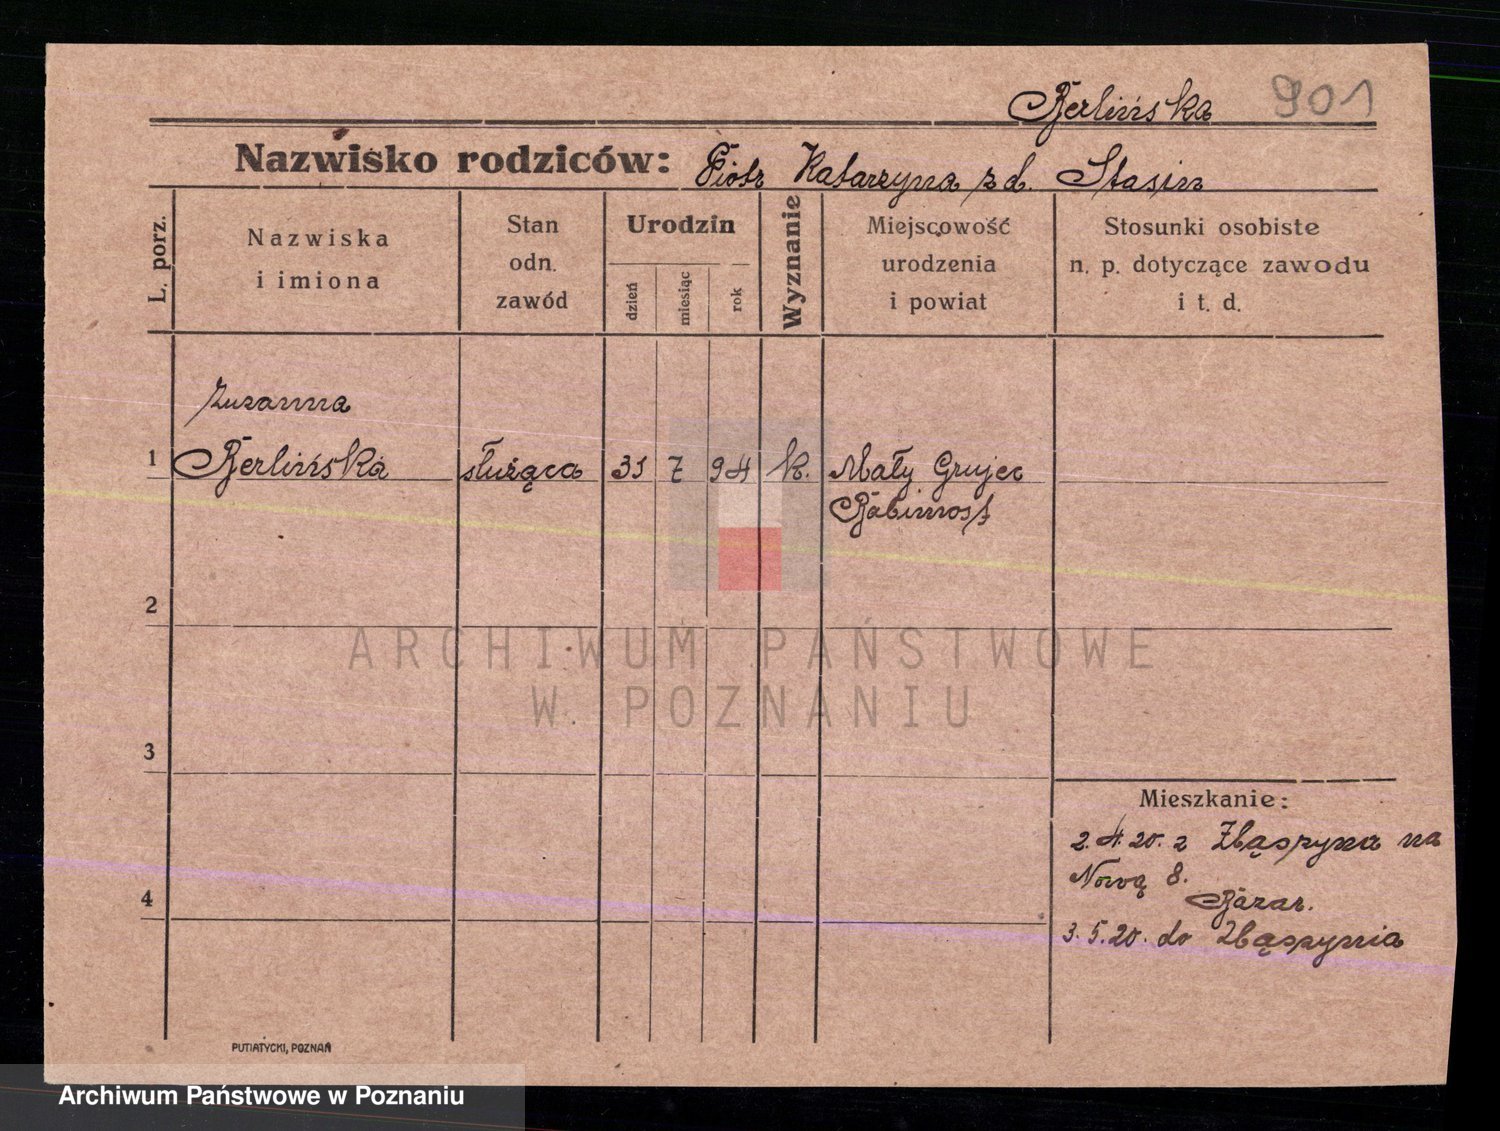 Berlińska 901
Nazwisko rodziców: Piotr Katarzyna z d. Stasin
L. porz.
Nazwiska
i imiona
Stan
odn.
zawód
Urodzin
dzień
miesiąc
rok
Wyznanie
Miejscowość
urodzenia
i powiat
Stosunki osobiste
n. p. dotyczące zawodu
i t. d.
Zuzanna
1 Berlińska służąca 31 7 94 k. Mały Grujec
Babimost
2
3
4
Mieszkanie:
2.4.20. z Zbąszyna na
Nową 8.
Bazar.
3.5.20. do Zbąszynia
PUTIATYCKI, POZNAŃ
ARCHIWUM PAŃSTWOWE
W POZNANIU
Archiwum Państwowe w Poznaniu